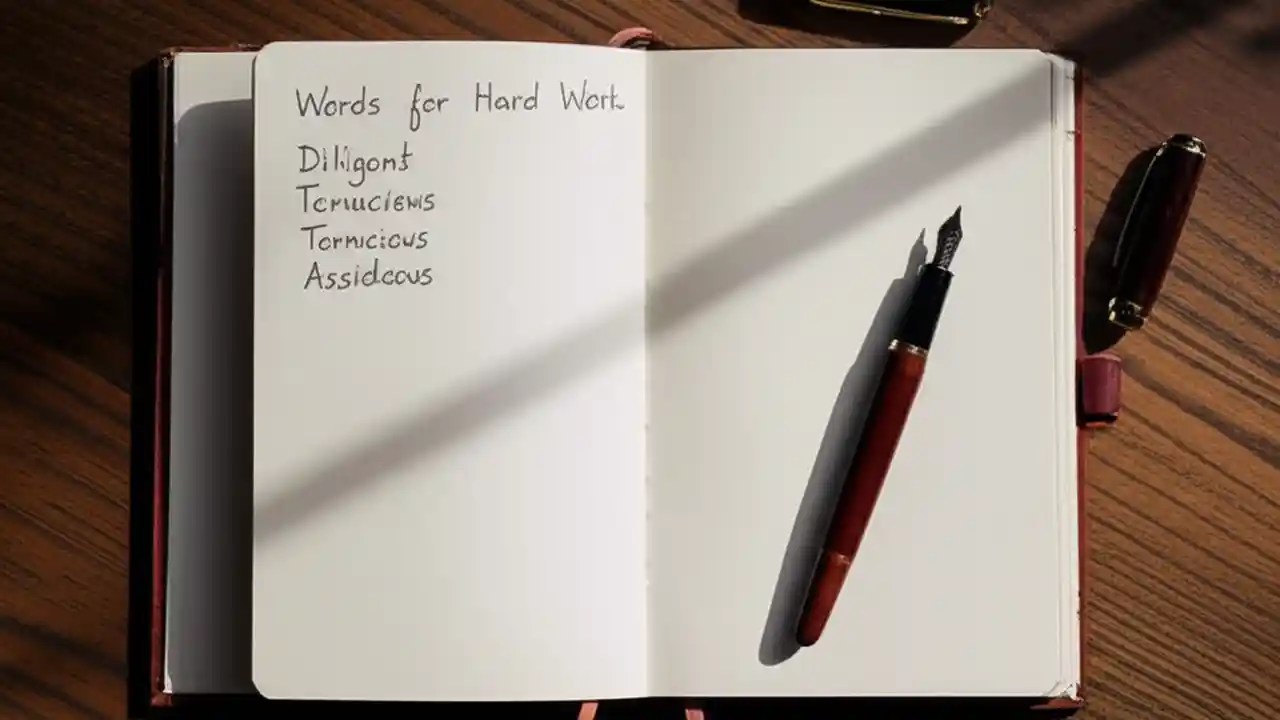 Words for Hard Work
Diligent
Tenuciews
Tornicious
Assideous